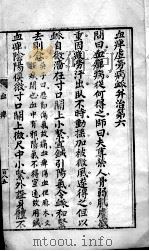 血痺虛勞病脉并治第六
問曰血痺病從何得之師曰夫尊榮人骨弱肌膚盛
重因疲勞汗出臥不時動搖加被微風遂得之但以
脉自微濇在寸口關上小緊宜鍼引陽氣令脉和緊
去則愈
血痺陰陽俱微寸口關上微尺中小緊外證身體不
血痺